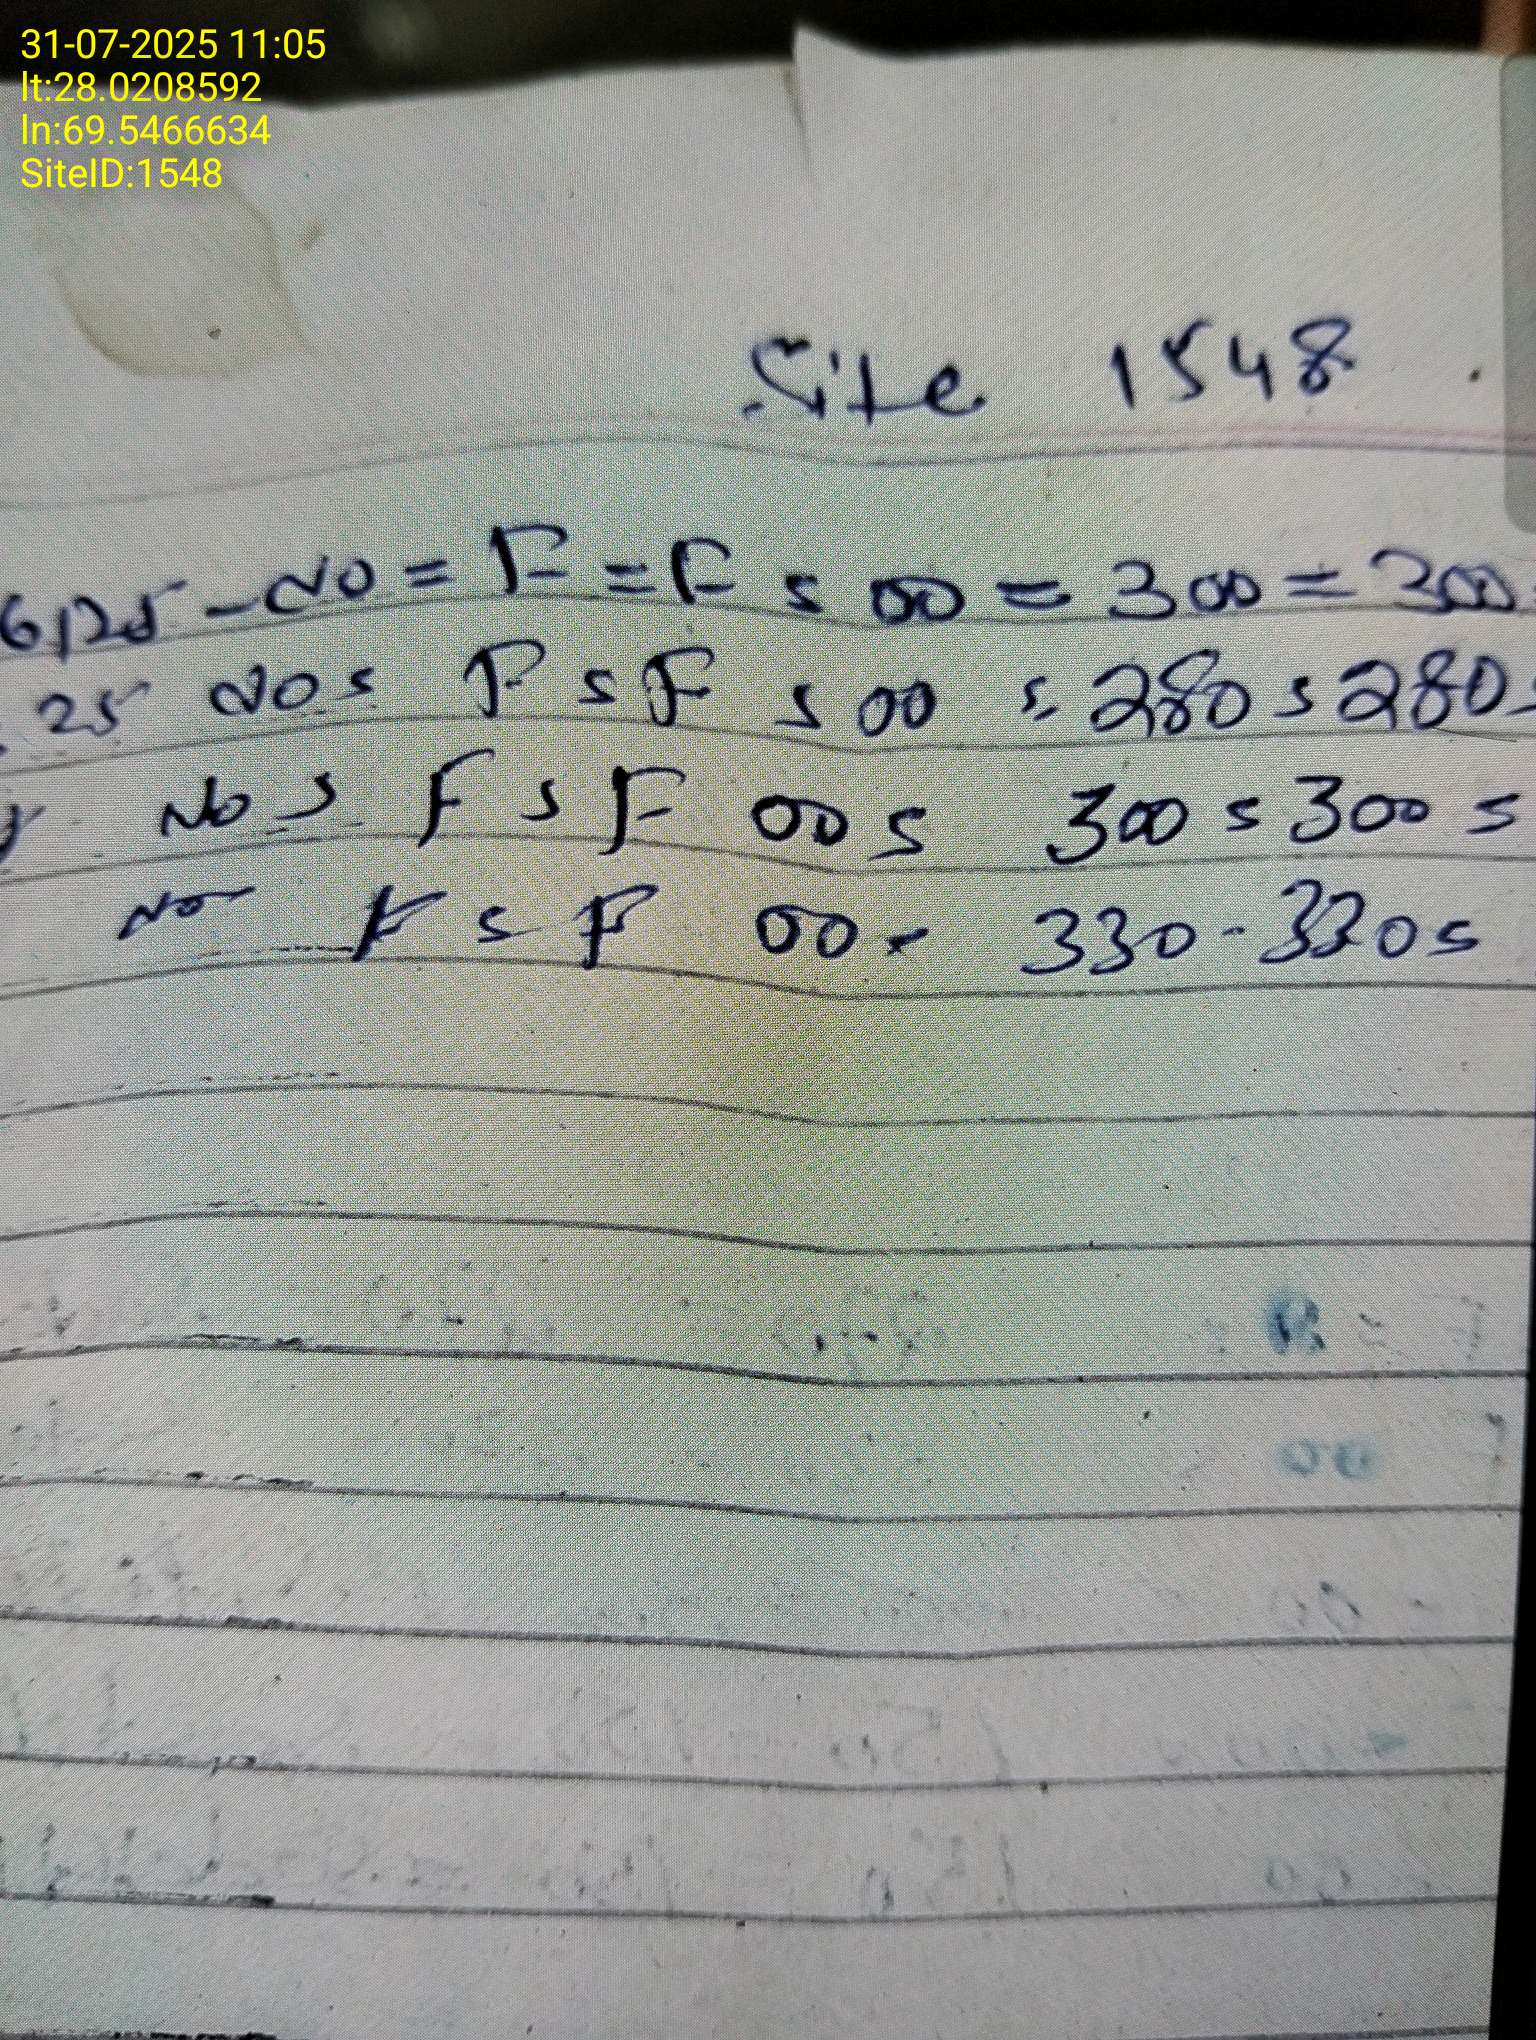 31-07-2025 11:05
lt:28.0208592
ln:69.5466634
SiteID:1548
Site 1548
6,25 - No = F = F s 00 = 300 = 300
25 No s F s F s 00 s 280 s 280 s
No s F s F 00 s 300 s 300 s
No F s F 00 - 330 - 330 s